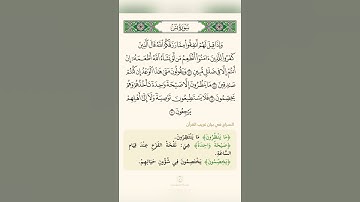 سورة يس
وَإِذَا قِيلَ لَهُمْ أَنفِقُوا۟ مِمَّا رَزَقَكُمُ ٱللَّهُ قَالَ ٱلَّذِينَ
كَفَرُوا۟ لِلَّذِينَ ءَامَنُوٓا۟ أَنُطْعِمُ مَن لَّوْ يَشَآءُ ٱللَّهُ أَطْعَمَهُۥٓ إِنْ
أَنتُمْ إِلَّا فِى ضَلَٰلٍ مُّبِينٍ ۝ وَيَقُولُونَ مَتَىٰ هَٰذَا ٱلْوَعْدُ إِن كُنتُمْ
صَٰدِقِينَ ۝ مَا يَنظُرُونَ إِلَّا صَيْحَةً وَٰحِدَةً تَأْخُذُهُمْ وَهُمْ
يَخِصِّمُونَ ۝ فَلَا يَسْتَطِيعُونَ تَوْصِيَةً وَلَآ إِلَىٰٓ أَهْلِهِمْ
يَرْجِعُونَ ۝
السراج في بيان غريب القرآن
﴿مَا يَنظُرُونَ﴾ مَا يَنْتَظِرُونَ.
﴿صَيْحَةً وَاحِدَةً﴾ هِيَ: نَفْخَةُ الفَزَعِ عِنْدَ قِيَامِ
السَّاعَةِ.
﴿يَخِصِّمُونَ﴾ يَخْتَصِمُونَ فِي شُؤُونِ حَيَاتِهِمْ.